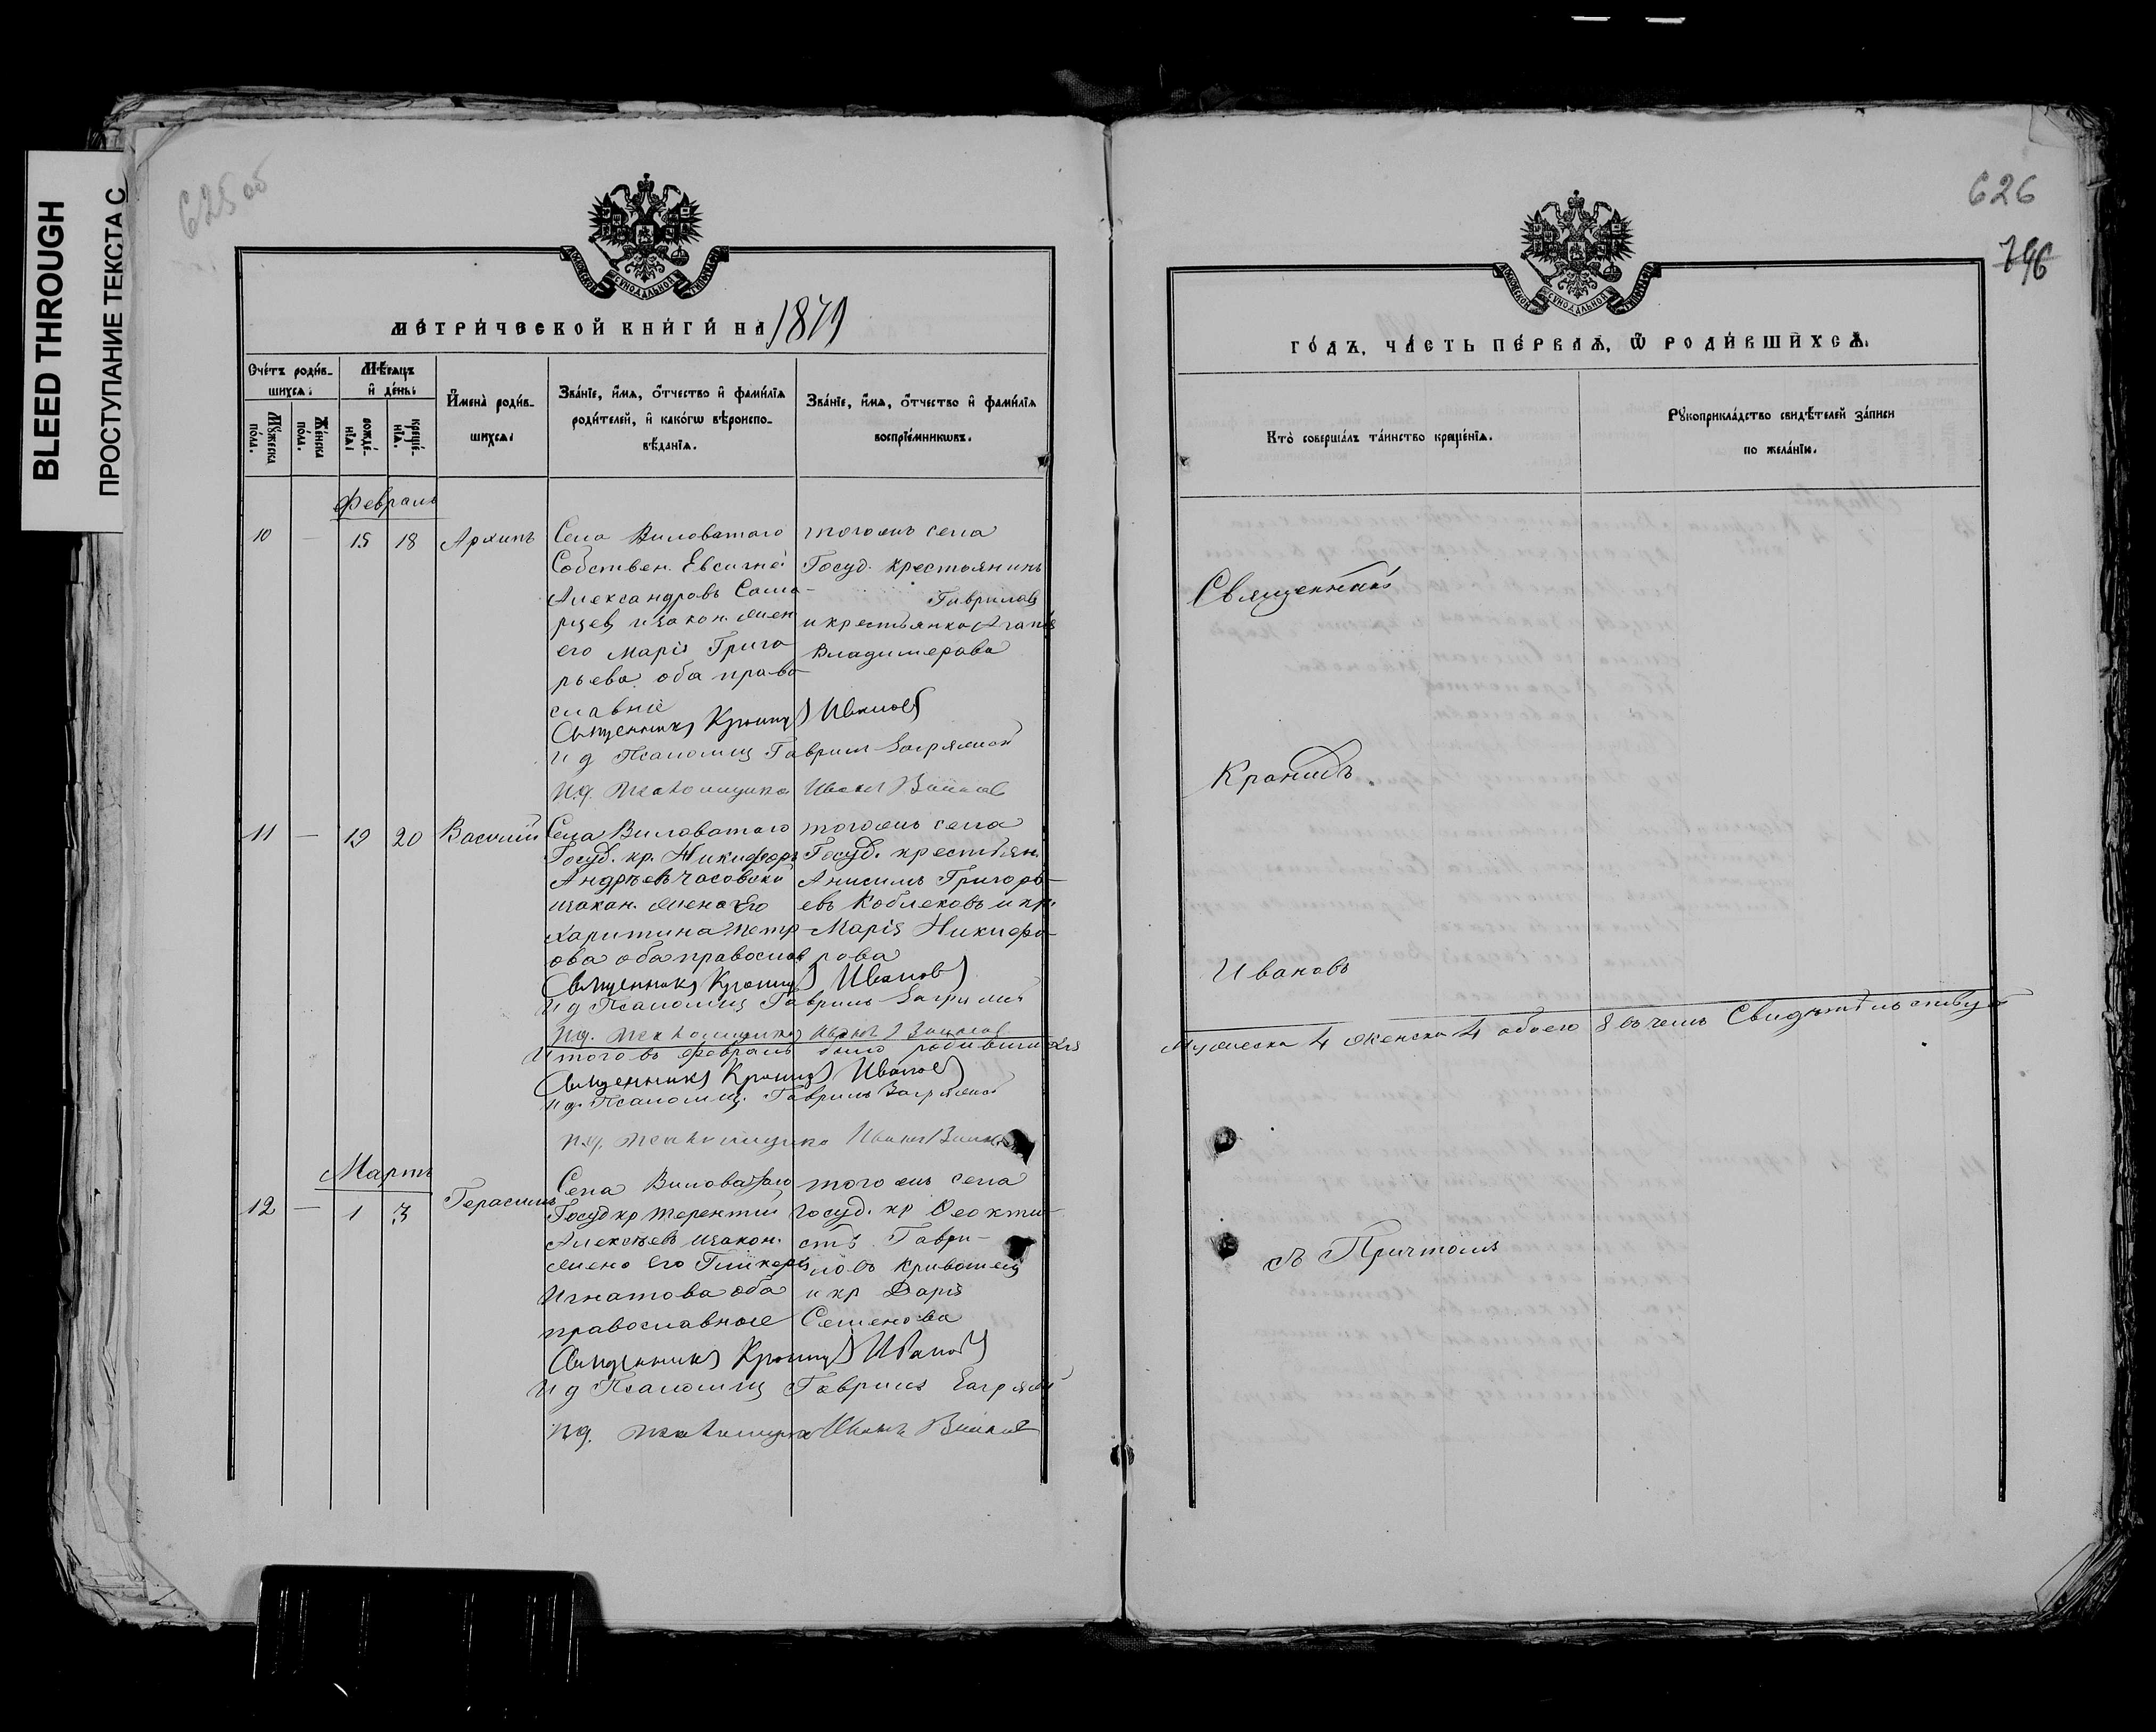 BLEED THROUGH
ПРОСТУПАНИЕ ТЕКСТА С
625 об
МЕТРИЧЕСКОЙ КНИГИ НА 1871
Счетъ родив-
шихся:
Мѣсяцъ
и день:
Мужеска пола.
Женска пола.
рождениiя:
крещенiя.
Имена родив-
шихся:
Званiе, имя, отчество и фамилiя
родителей, и какогω вѣроиспо-
вѣданiя.
Званiе, имя, отчество и фамилiя
воспрiемникωвъ.
Февраль
10 — 15 18 Архипъ
Села Виловатаго
Собствен. Евсигней
Александровъ Сама-
рцев и закон. жен
его Марiя Григо
рьева оба право-
славнiе
тогожъ села
Госуд. крестьянинъ
Гаврилов
и крестьянка Агапiя
Владимерова
Священникъ Кронидъ Ивановъ
И д Псаломщ Гаврiил
И.д. Псаломщика Иванъ
11 — 19 20 Василiй
Села Виловатаго
Госуд. кр. Никифоръ
Андрѣевъ Часовской
и закон. жена его
Харитина Петр-
ова оба православ
тогожъ села
Госуд. крестьян.
Анисимъ Григорь-
евъ Кобляковъ и кр.
Марiя Никифо-
рова
Священникъ Кронидъ Ивановъ
И д Псаломщ Гаврiилъ
И.д. Псаломщика Иванъ
Итого въ февралѣ было родившихся
Священникъ Кронидъ Ивановъ
И д. Псаломщ. Гаврiилъ
И.д. Псаломщика Иванъ
Мартъ
12 — 1 3 Герасимъ
Села Виловатаго
Госуд кр Терентiй
Алексѣевъ и закон.
жена его Гликерiя
Игнатова оба
православные
тогожъ села
госуд. кр Феокти-
стъ Гаври-
ловъ Кривошей
и кр Дарiя
Семенова
Священникъ Кронидъ Ивановъ
И д Псаломщ Гаврiилъ
И.д. Псаломщика Иванъ
626
796
ГОДЪ, ЧАСТЬ ПЕРВАЯ, Ѿ РОДИВШИХСЯ.
Кто совершалъ таинство крещенiя.
Рукоприкладство свидѣтелей записи
по желанiи.
Священникъ
Кронидъ
Ивановъ
Мужеска 4 женска 4 обоего 8 въ чемъ Свидѣтельствуетъ
съ Причтомъ